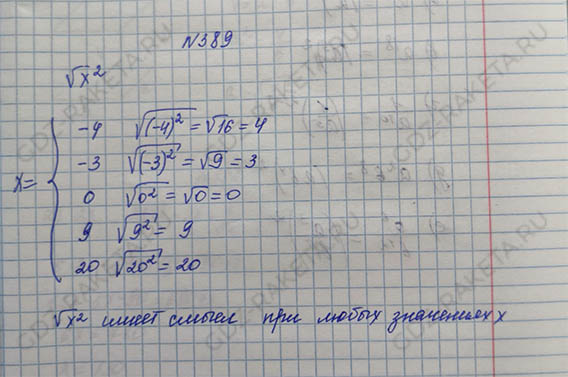 №389
√x²
x = { -4 √(-4)² = √16 = 4
-3 √(-3)² = √9 = 3
0 √0² = √0 = 0
9 √9² = 9
20 √20² = 20
√x² имеет смысл при любых значениях x
GDZ-RAKETA.RU